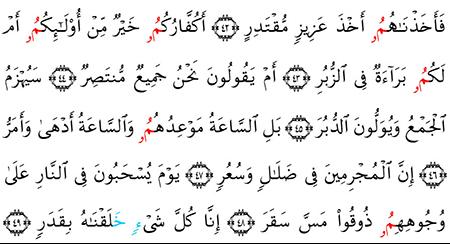 فَأَخَذْنَٰهُمُۥ أَخْذَ عَزِيزٍ مُّقْتَدِرٍ ٤٢ أَكُفَّارُكُمُۥ خَيْرٌ مِّنْ أُوْلَٰٓئِكُمُۥ أَمْ
لَكُمُۥ بَرَآءَةٌ فِى ٱلزُّبُرِ ٤٣ أَمْ يَقُولُونَ نَحْنُ جَمِيعٌ مُّنتَصِرٌ ٤٤ سَيُهْزَمُ
ٱلْجَمْعُ وَيُوَلُّونَ ٱلدُّبُرَ ٤٥ بَلِ ٱلسَّاعَةُ مَوْعِدُهُمُۥ وَٱلسَّاعَةُ أَدْهَىٰ وَأَمَرُّ
٤٦ إِنَّ ٱلْمُجْرِمِينَ فِى ضَلَٰلٍ وَسُعُرٍ ٤٧ يَوْمَ يُسْحَبُونَ فِى ٱلنَّارِ عَلَىٰ
وُجُوهِهِمُۥ ذُوقُواْ مَسَّ سَقَرَ ٤٨ إِنَّا كُلَّ شَىْءٍ خَلَقْنَٰهُ بِقَدَرٍ ٤٩